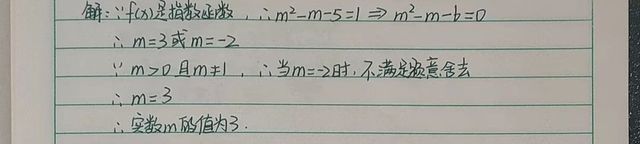 解：∵f(x)是指数函数，∴m²-m-5=1⇒m²-m-6=0
∴m=3或m=-2
∵m>0且m≠1，∴当m=-2时，不满足题意舍去
∴m=3
∴实数m的值为3.